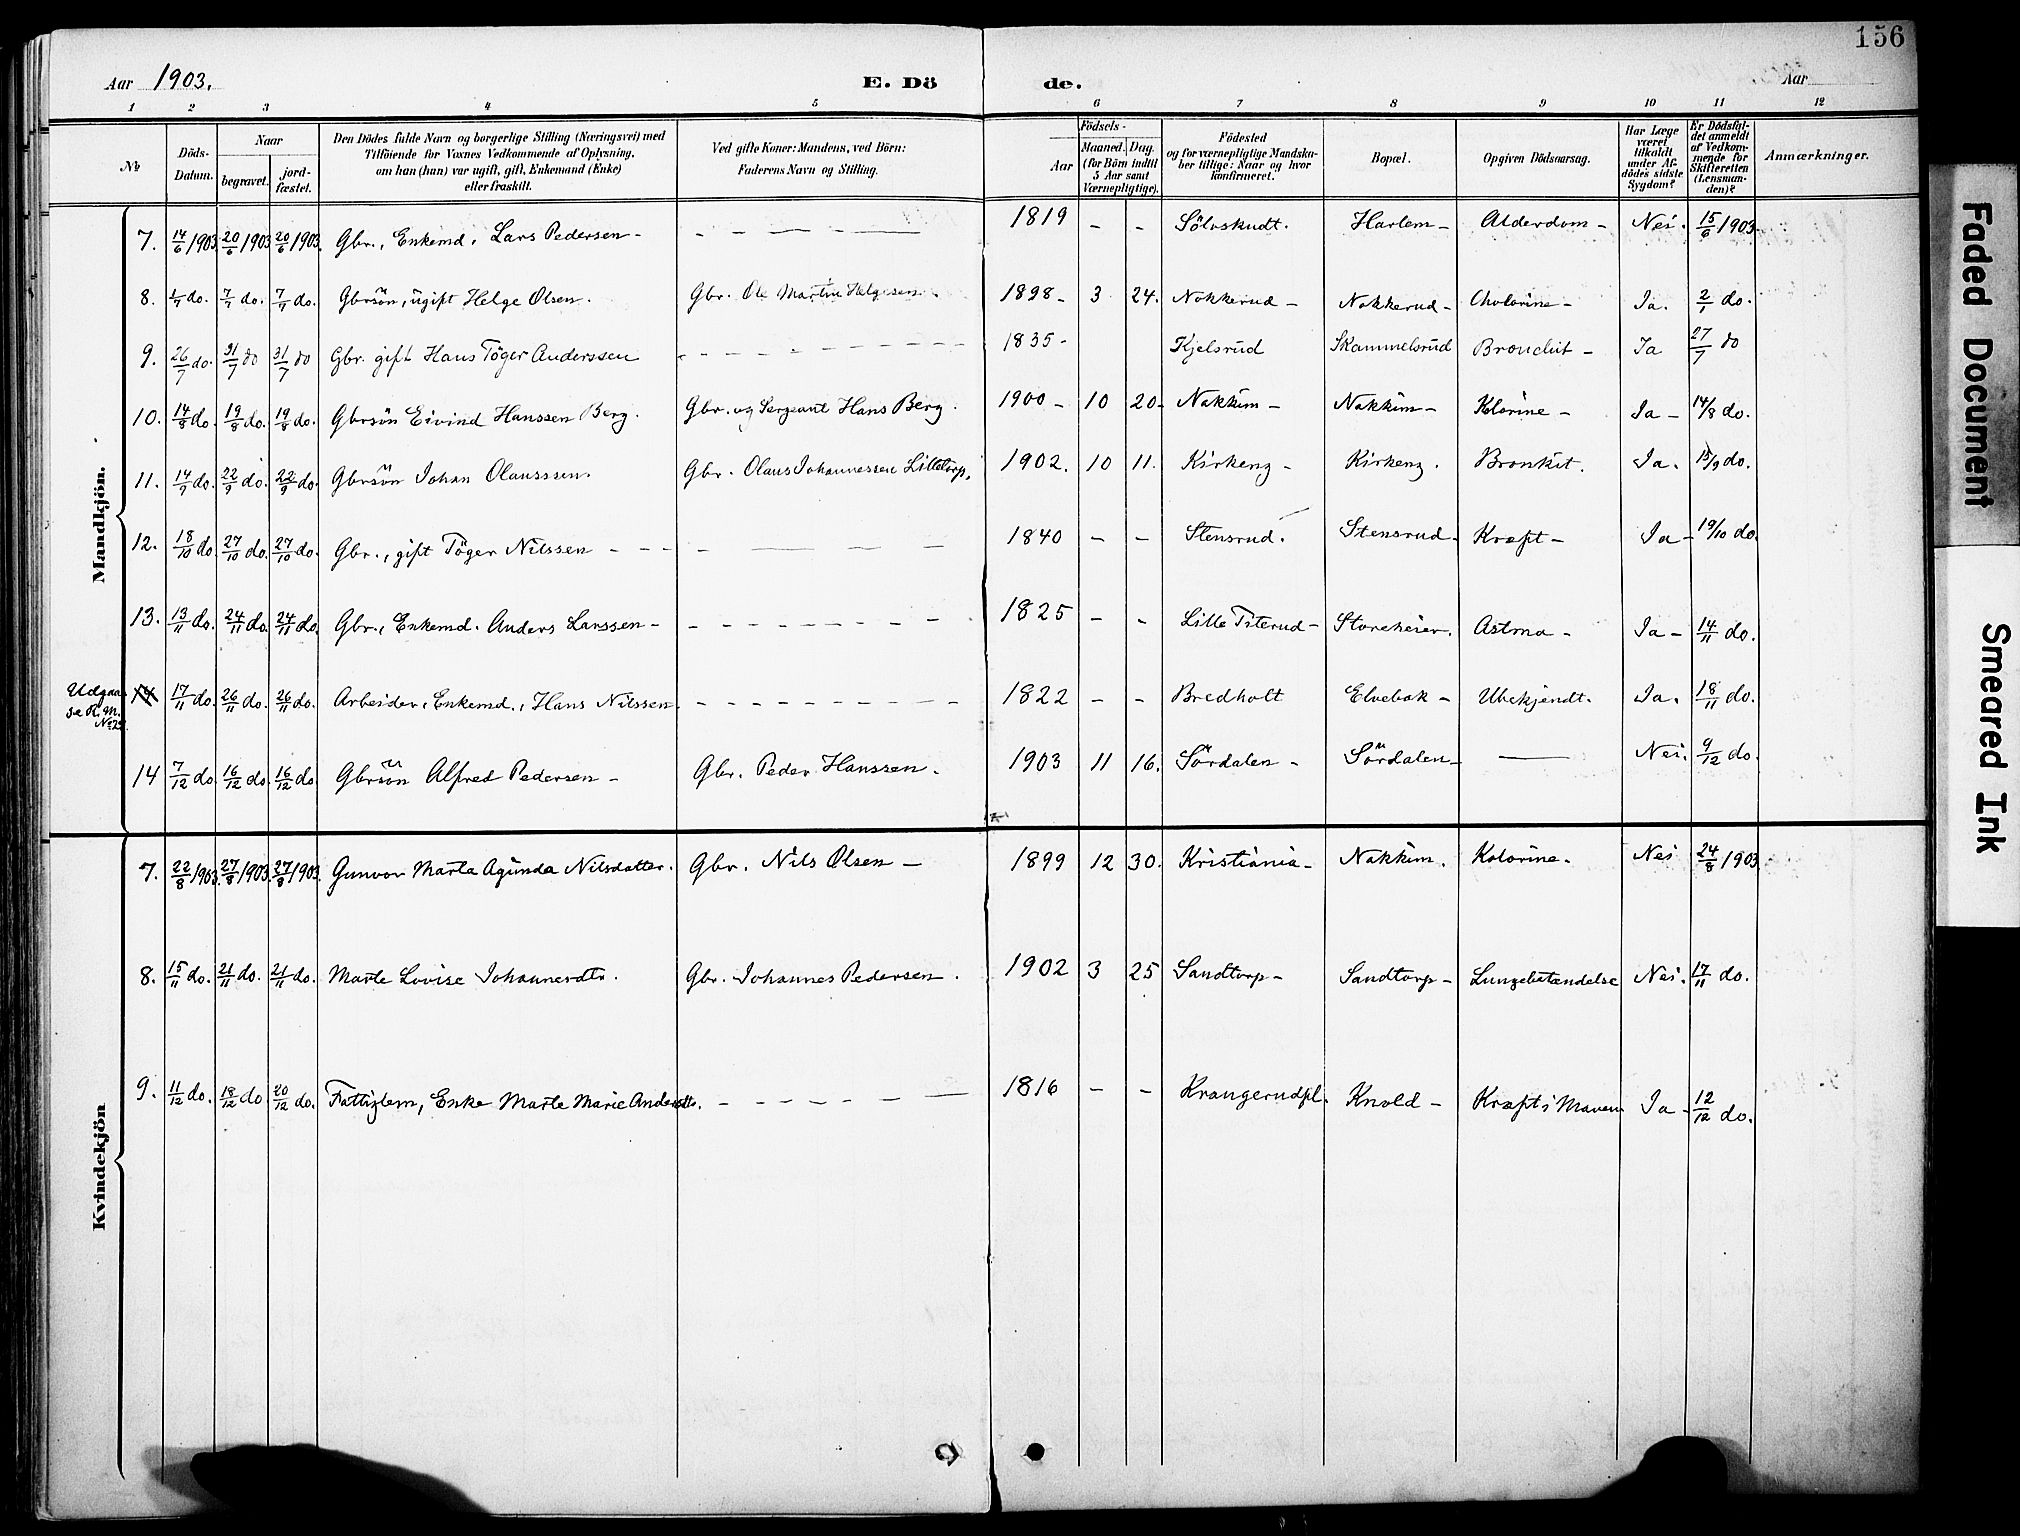 156
Aar 1903.
E. Dö de.
Aar
1 2 3 4 5 6 7 8 9 10 11 12
No
Döds-Datum.
Naar
begravet.
jord-fæstet.
Den Dödes fulde Navn og borgerlige Stilling (Næringsvei) med
Tilföiende for Voxnes Vedkommende af Oplysning,
om han (hun) var ugift, gift, Enkemand (Enke)
eller fraskilt.
Ved gifte Koner: Mandens, ved Börn:
Faderens Navn og Stilling.
Födsels-
Aar
Maaned. Dag.
(for Börn indtil
5 Aar samt
Værnepligtige).
Födested
og for værnepligtige Mandska-
ber tillige: Naar og hvor
konfirmeret.
Bopæl.
Opgiven Dödsaarsag.
Har Læge
været
tilkaldt
under Af-
dödes sidste
Sygdom?
Er Dödsfal-
det anmeldt
af Vedkom-
mende for
Skifteretten
(Lensman-
den)?
Anmærkninger.
Mandkjön.
7. 14/6 1903 20/6 1903 20/6 1903. Gbr., Enkemd. Lars Pedersen - 1819 - - Sölvskudt. Harlem - Alderdom - Nei. 15/6 1903.
8. 1/7 do. 7/7 do. 7/7 do. Gbrsön, ugift Helge Olsen. Gbr. Ole Martin Helgesen. 1898 - 3 24. Nakkerud - Nakkerud - Cholorine - Ja. 2/7 do.
9. 26/7 do. 31/7 do 31/7 do Gbr. gift Hans Töger Anderssen 1835 - Kjelsrud Skammelsrud Bronchit - Ja 27/7 do
10. 14/8 do. 19/8 do. 19/8 do. Gbrsön Eivind Hanssen Berg. Gbr. og Sergeant Hans Berg. 1900 - 10 20. Nakkim - Nakkim - Kolorine - Ja - 14/8 do.
11. 14/9 do. 22/9 do. 22/9 do. Gbrsön Johan Olausssen. Gbr. Olaus Johannessen Lilletorp. 1902. 10 11. Kirkeng - Kirkeng. Bronkit. Ja. 15/9 do.
12. 18/10 do 27/10 do. 27/10 do. Gbr., gift Töger Nilssen - 1840 - - Stensrud. Stensrud - Kræft - Ja - 19/10 do.
13. 13/11 do. 24/11 do. 24/11 do. Gbr., Enkemd. Anders Larssen - 1825 - - Lille Titerud - Storeheier. Astma - Ja - 14/11 do.
Udgaar
se R. M.
14 17/11 do. 26/11 do. 26/11 do. Arbeider, Enkemd., Hans Nilssen. 1822 - - Bredholt Elvebak - Ubekjendt. Ja. 18/11 do.
14 7/12 do. 16/12 do. 16/12 do. Gbrsön Alfred Pedersen - Gbr. Peder Hanssen. 1903 11 16. Sördalen - Sördalen - Nei. 9/12 do.
Kvindekjön
7. 22/8 1903. 27/8 1903. 27/8 1903. Gunvor Marta Agunda Nilsdatter. Gbr. Nils Olsen - 1899 12 30. Kristiania - Nakkim. Kolorine. Nei 24/8 1903
8. 15/11 do. 21/11 do. 21/11 do. Marte Lovise Johannesdtr. Gbr. Johannes Pedersen. 1902 3 25 Sandtorp - Sandtorp - Lungebetændelse Nei. 17/11 do.
9. 11/12 do. 18/12 do 20/12 do. Fattiglem, Enke Marte Marie Andersdtr. 1816 - - Krangerudpl. Knold - Kræft i Maven Ja - 12/12 do.
Faded Document
Smeared Ink